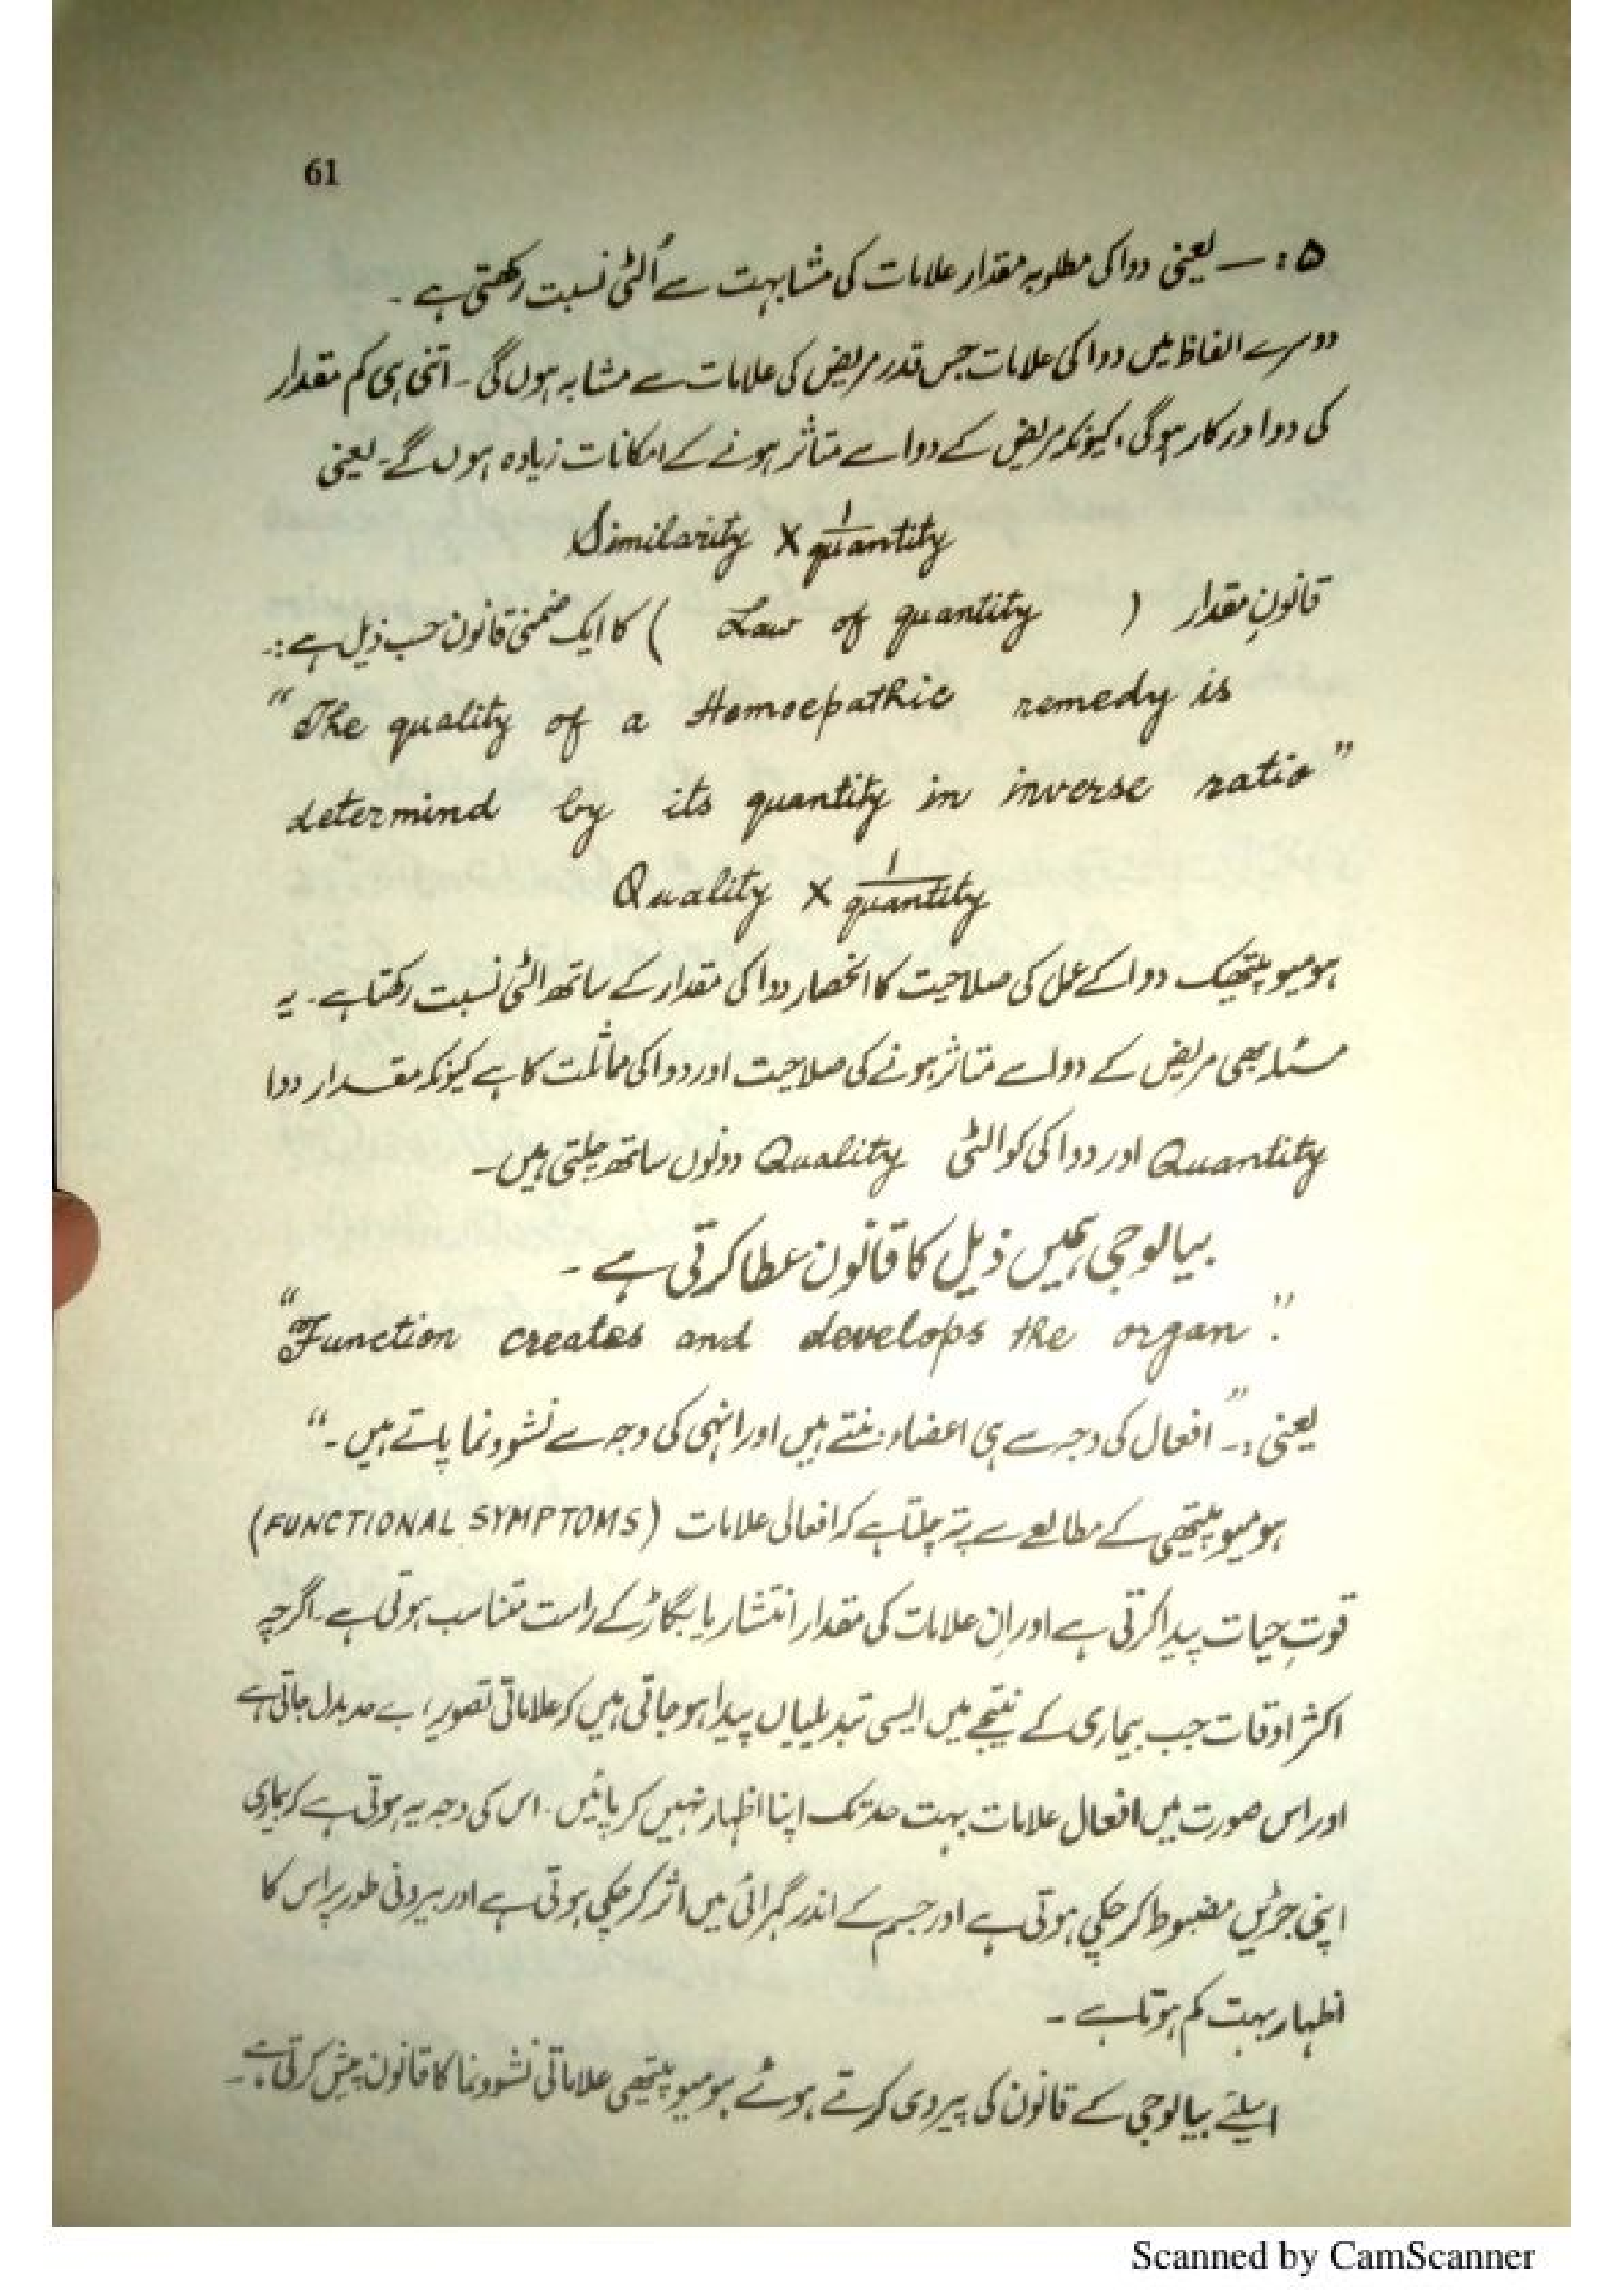 61
۵ :— یعنی دوا کی مطلوبہ مقدار علامات کی مشابہت سے اُلٹی نسبت رکھتی ہے ۔
دوسرے الفاظ میں دوا کی علامات جس قدر مریض کی علامات سے مشابہ ہوں گی ۔ اتنی ہی کم مقدار
کی دوا درکار ہوگی ، کیونکہ مریض کے دوا سے متاثر ہونے کے امکانات زیادہ ہوں گے ۔ یعنی
Similarity × 1/quantity
قانونِ مقدار ( Law of quantity ) کا ایک ضمنی قانون حسب ذیل ہے :۔
" The quality of a Homoepathic remedy is
determind by its quantity in inverse ratio "
Quality × 1/quantity
ہومیوپیتھک دوا کے عمل کی صلاحیت کا انحصار دوا کی مقدار کے ساتھ الٹی نسبت رکھتا ہے ۔ یہ
مسئلہ بھی مریض کے دوا سے متاثر ہونے کی صلاحیت اور دوا کی مماثلت کا ہے کیونکہ مقدار دوا
Quantity اور دوا کی کوالٹی Quality دونوں ساتھ چلتی ہیں ۔
بیالوجی ہمیں ذیل کا قانون عطا کرتی ہے ۔
" Function creates and develops the organ ".
یعنی :۔ " افعال کی وجہ سے ہی اعضاء بنتے ہیں اور انہی کی وجہ سے نشوونما پاتے ہیں ۔ "
ہومیوپیتھی کے مطالعے سے پتہ چلتا ہے کہ افعالی علامات (FUNCTIONAL SYMPTOMS)
قوتِ حیات پیدا کرتی ہے اور اِن علامات کی مقدار انتشار یا بگاڑ کے راست متناسب ہوتی ہے ۔ اگرچہ
اکثر اوقات جب بیماری کے نتیجے میں ایسی تبدیلیاں پیدا ہو جاتی ہیں کہ علاماتی تصویر ، بے حد بدل جاتی ہے
اور اس صورت میں افعال علامات بہت حد تک اپنا اظہار نہیں کر پائیں ۔ اس کی وجہ یہ ہوتی ہے کہ بیماری
اپنی جڑیں مضبوط کر چکی ہوتی ہے اور جسم کے اندر گہرائی میں اثر کر چکی ہوتی ہے اور بیرونی طور پر اس کا
اظہار بہت کم ہوتا ہے ۔
اسلئے بیالوجی کے قانون کی پیروی کرتے ہوئے ہومیوپیتھی علاماتی نشوونما کا قانون پیش کرتی ہے ۔
Scanned by CamScanner